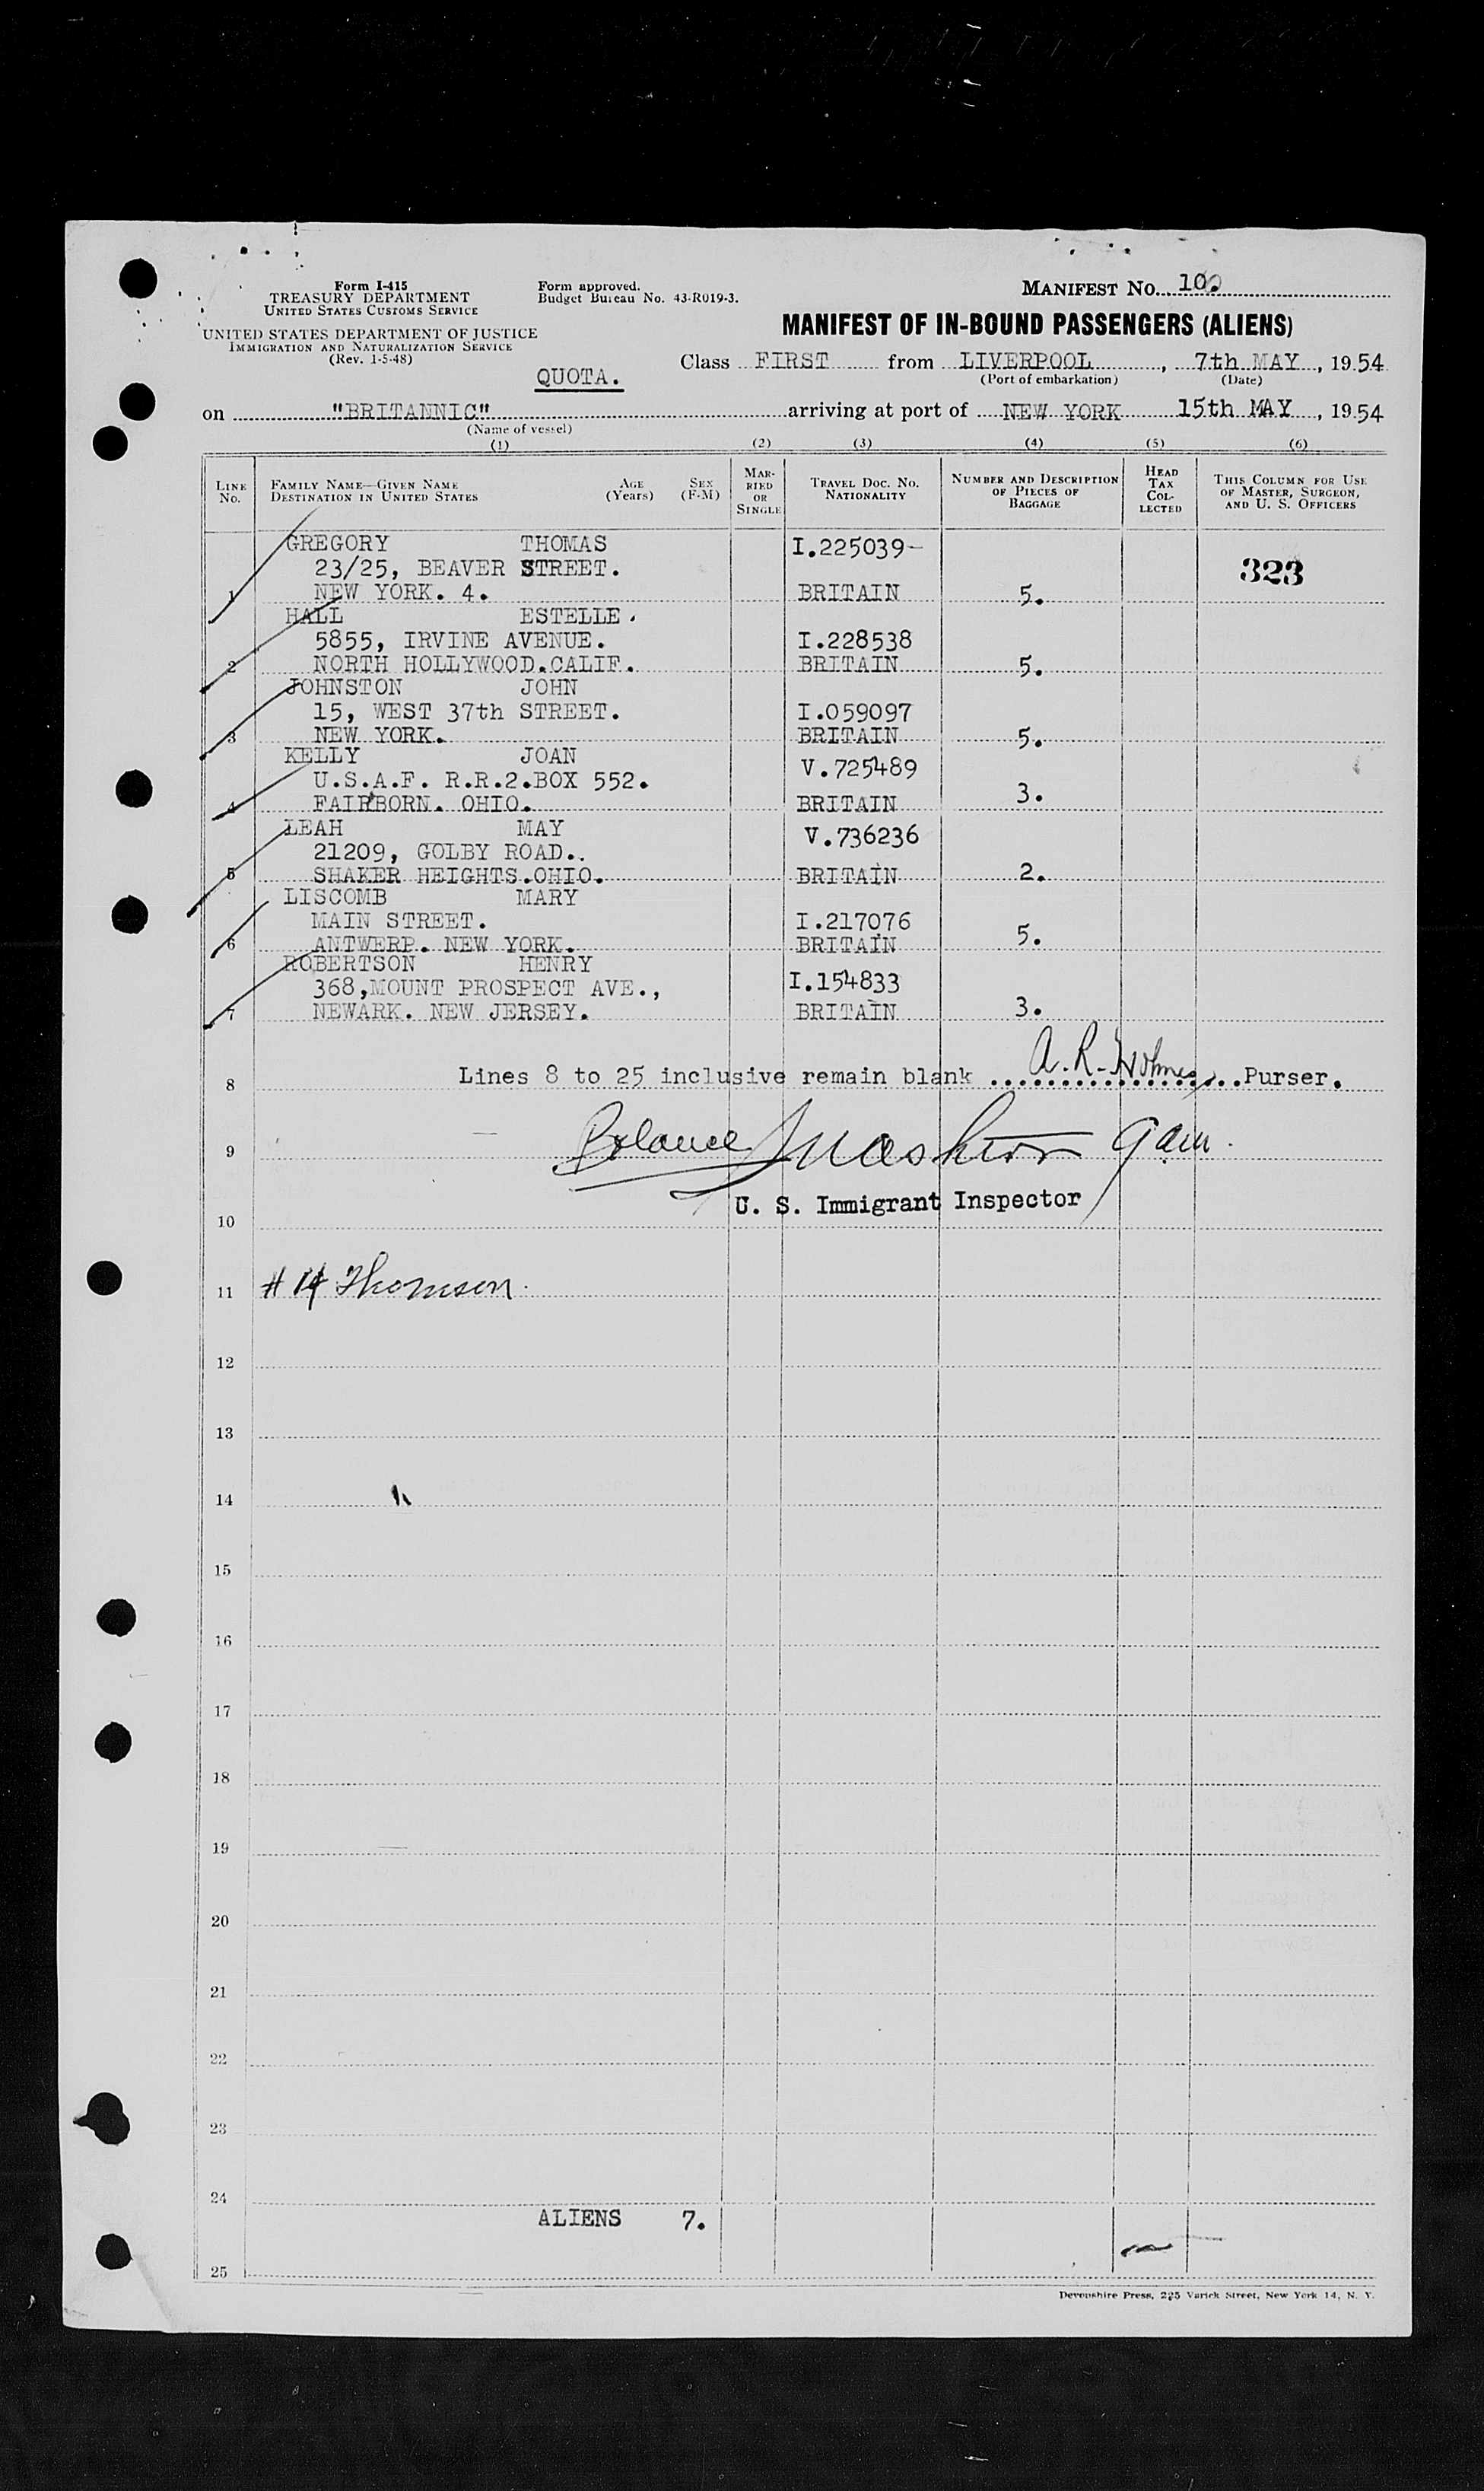 Form I-415
TREASURY DEPARTMENT
UNITED STATES CUSTOMS SERVICE
UNITED STATES DEPARTMENT OF JUSTICE
IMMIGRATION AND NATURALIZATION SERVICE
(Rev. 1-5-48)
Form approved.
Budget Bureau No. 43-R019-3.
MANIFEST NO.
MANIFEST OF IN-BOUND PASSENGERS (ALIENS)
Class FIRST from LIVERPOOL, 7th MAY, 1954
(Port of embarkation) (Date)
QUOTA.
on "BRITANNIC" arriving at port of NEW YORK 15th MAY, 1954
(Name of vessel)
(1) (2) (3) (4) (5) (6)
LINE No. FAMILY NAME—GIVEN NAME DESTINATION IN UNITED STATES AGE (Years) SEX (F-M) MARRIED OR SINGLE TRAVEL DOC. NO. NATIONALITY NUMBER AND DESCRIPTION OF PIECES OF BAGGAGE HEAD TAX COLLECTED THIS COLUMN FOR USE OF MASTER, SURGEON, AND U. S. OFFICERS
GREGORY THOMAS I.225039-
23/25, BEAVER STREET. 323
1 NEW YORK. 4. BRITAIN 5.
HALL ESTELLE.
5855, IRVINE AVENUE. I.228538
2 NORTH HOLLYWOOD.CALIF. BRITAIN 5.
JOHNSTON JOHN
15, WEST 37th STREET. I.059097
3 NEW YORK. BRITAIN 5.
KELLY JOAN V.725489
U.S.A.F. R.R.2.BOX 552.
4 FAIRBORN. OHIO. BRITAIN 3.
LEAH MAY V.736236
21209, GOLBY ROAD..
5 SHAKER HEIGHTS.OHIO. BRITAIN 2.
LISCOMB MARY
MAIN STREET. I.217076
6 ANTWERP. NEW YORK. BRITAIN 5.
ROBERTSON HENRY
368,MOUNT PROSPECT AVE., I.154833
7 NEWARK. NEW JERSEY. BRITAIN 3.
8 Lines 8 to 25 inclusive remain blank A.R. Holmes Purser.
9
U. S. Immigrant Inspector
10
11 Thomson.
12
13
14
15
16
17
18
19
20
21
22
23
24
ALIENS 7.
25
Devonshire Press, 225 Varick Street, New York 14, N. Y.